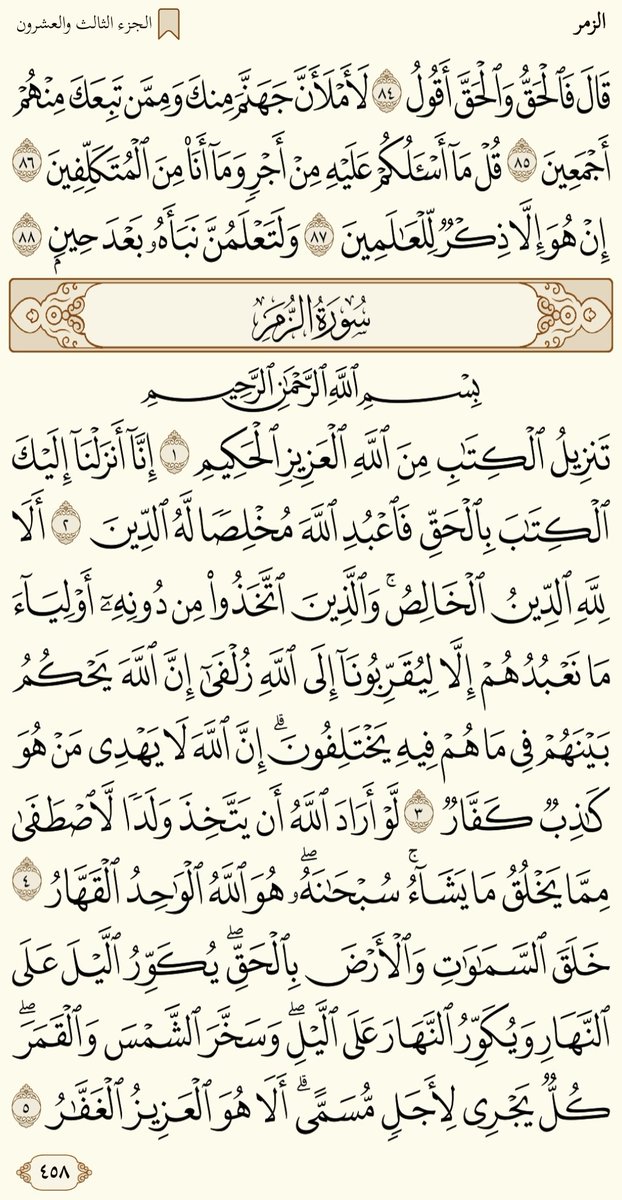 الزمر
الجزء الثالث والعشرون
قَالَ فَٱلْحَقُّ وَٱلْحَقَّ أَقُولُ ٨٤ لَأَمْلَأَنَّ جَهَنَّمَ مِنكَ وَمِمَّن تَبِعَكَ مِنْهُمْ
أَجْمَعِينَ ٨٥ قُلْ مَآ أَسْـَٔلُكُمْ عَلَيْهِ مِنْ أَجْرٍ وَمَآ أَنَا۠ مِنَ ٱلْمُتَكَلِّفِينَ ٨٦
إِنْ هُوَ إِلَّا ذِكْرٌ لِّلْعَٰلَمِينَ ٨٧ وَلَتَعْلَمُنَّ نَبَأَهُۥ بَعْدَ حِينٍۭ ٨٨
سُورَةُ الزُّمَرِ
بِسْمِ ٱللَّهِ ٱلرَّحْمَٰنِ ٱلرَّحِيمِ
تَنزِيلُ ٱلْكِتَٰبِ مِنَ ٱللَّهِ ٱلْعَزِيزِ ٱلْحَكِيمِ ١ إِنَّآ أَنزَلْنَآ إِلَيْكَ
ٱلْكِتَٰبَ بِٱلْحَقِّ فَٱعْبُدِ ٱللَّهَ مُخْلِصًا لَّهُ ٱلدِّينَ ٢ أَلَا
لِلَّهِ ٱلدِّينُ ٱلْخَالِصُ ۚ وَٱلَّذِينَ ٱتَّخَذُوا۟ مِن دُونِهِۦٓ أَوْلِيَآءَ
مَا نَعْبُدُهُمْ إِلَّا لِيُقَرِّبُونَآ إِلَى ٱللَّهِ زُلْفَىٰٓ إِنَّ ٱللَّهَ يَحْكُمُ
بَيْنَهُمْ فِى مَا هُمْ فِيهِ يَخْتَلِفُونَ ۗ إِنَّ ٱللَّهَ لَا يَهْدِى مَنْ هُوَ
كَٰذِبٌ كَفَّارٌ ٣ لَّوْ أَرَادَ ٱللَّهُ أَن يَتَّخِذَ وَلَدًا لَّٱصْطَفَىٰ
مِمَّا يَخْلُقُ مَا يَشَآءُ ۚ سُبْحَٰنَهُۥ ۖ هُوَ ٱللَّهُ ٱلْوَٰحِدُ ٱلْقَهَّارُ ٤
خَلَقَ ٱلسَّمَٰوَٰتِ وَٱلْأَرْضَ بِٱلْحَقِّ ۖ يُكَوِّرُ ٱلَّيْلَ عَلَى
ٱلنَّهَارِ وَيُكَوِّرُ ٱلنَّهَارَ عَلَى ٱلَّيْلِ ۖ وَسَخَّرَ ٱلشَّمْسَ وَٱلْقَمَرَ ۖ
كُلٌّ يَجْرِى لِأَجَلٍ مُّسَمًّى ۗ أَلَا هُوَ ٱلْعَزِيزُ ٱلْغَفَّٰرُ ٥
٤٥٨